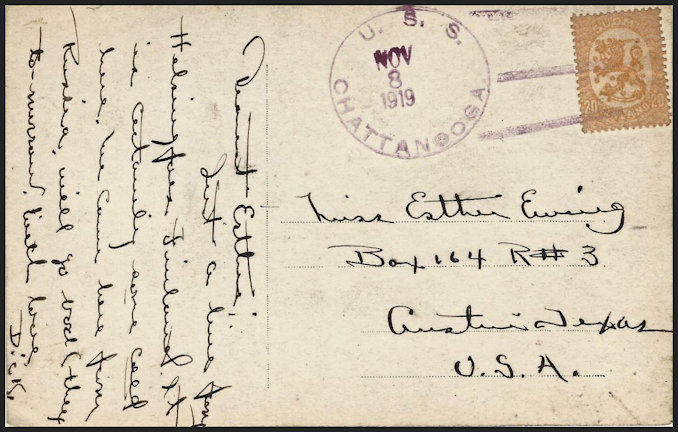 Dearest Esther;
Just a line from
Helsingfors Finland. It
is certainly some cold
here. We came here from
Russia, will go back
to-morrow, with love
Dick.
U. S. S.
NOV
8
1919
CHATTANOOGA.
SUOMI
20 20
Miss Esther Ewing
Box 164 R# 3
Austin Texas
U.S.A.